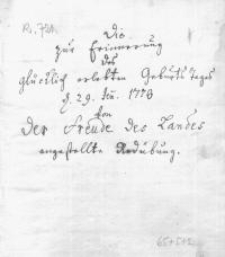 Die
zur Erinnerung
des
glücklich erlebten Geburts Tages
d. 29. 1773
von
der Freude des Landes
angestellte Andübung.